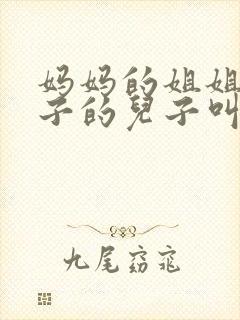 妈妈的姐姐
子的兒子叫
九尾窈窕